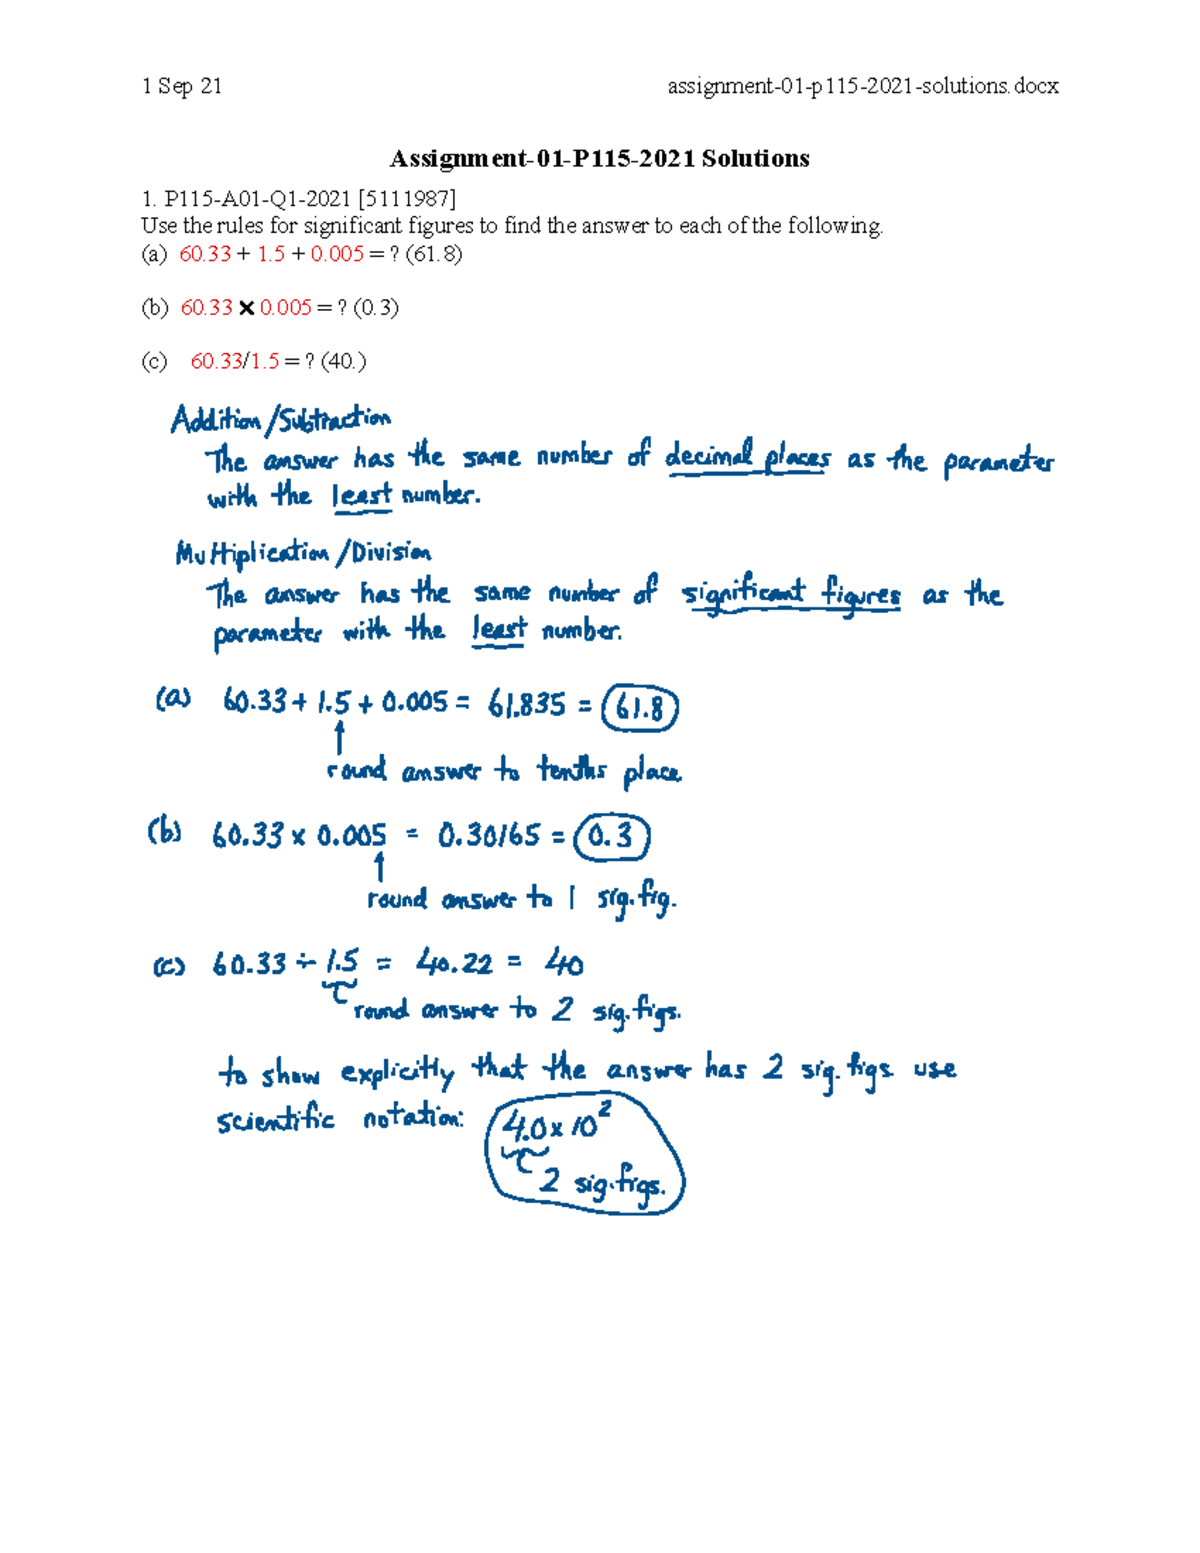 1 Sep 21 assignment-01-p115-2021-solutions.docx
Assignment-01-P115-2021 Solutions
1. P115-A01-Q1-2021 [5111987]
Use the rules for significant figures to find the answer to each of the following.
(a) 60.33 + 1.5 + 0.005 = ? (61.8)
(b) 60.33 × 0.005 = ? (0.3)
(c) 60.33/1.5 = ? (40.)
Addition/Subtraction
The answer has the same number of decimal places as the parameter
with the least number.
Multiplication/Division
The answer has the same number of significant figures as the
parameter with the least number.
(a) 60.33 + 1.5 + 0.005 = 61.835 = 61.8
round answer to tenths place
(b) 60.33 x 0.005 = 0.30165 = 0.3
round answer to 1 sig.fig.
(c) 60.33 ÷ 1.5 = 40.22 = 40
round answer to 2 sig.figs.
to show explicitly that the answer has 2 sig.figs use
scientific notation: 4.0 x 10²
2 sig.figs.